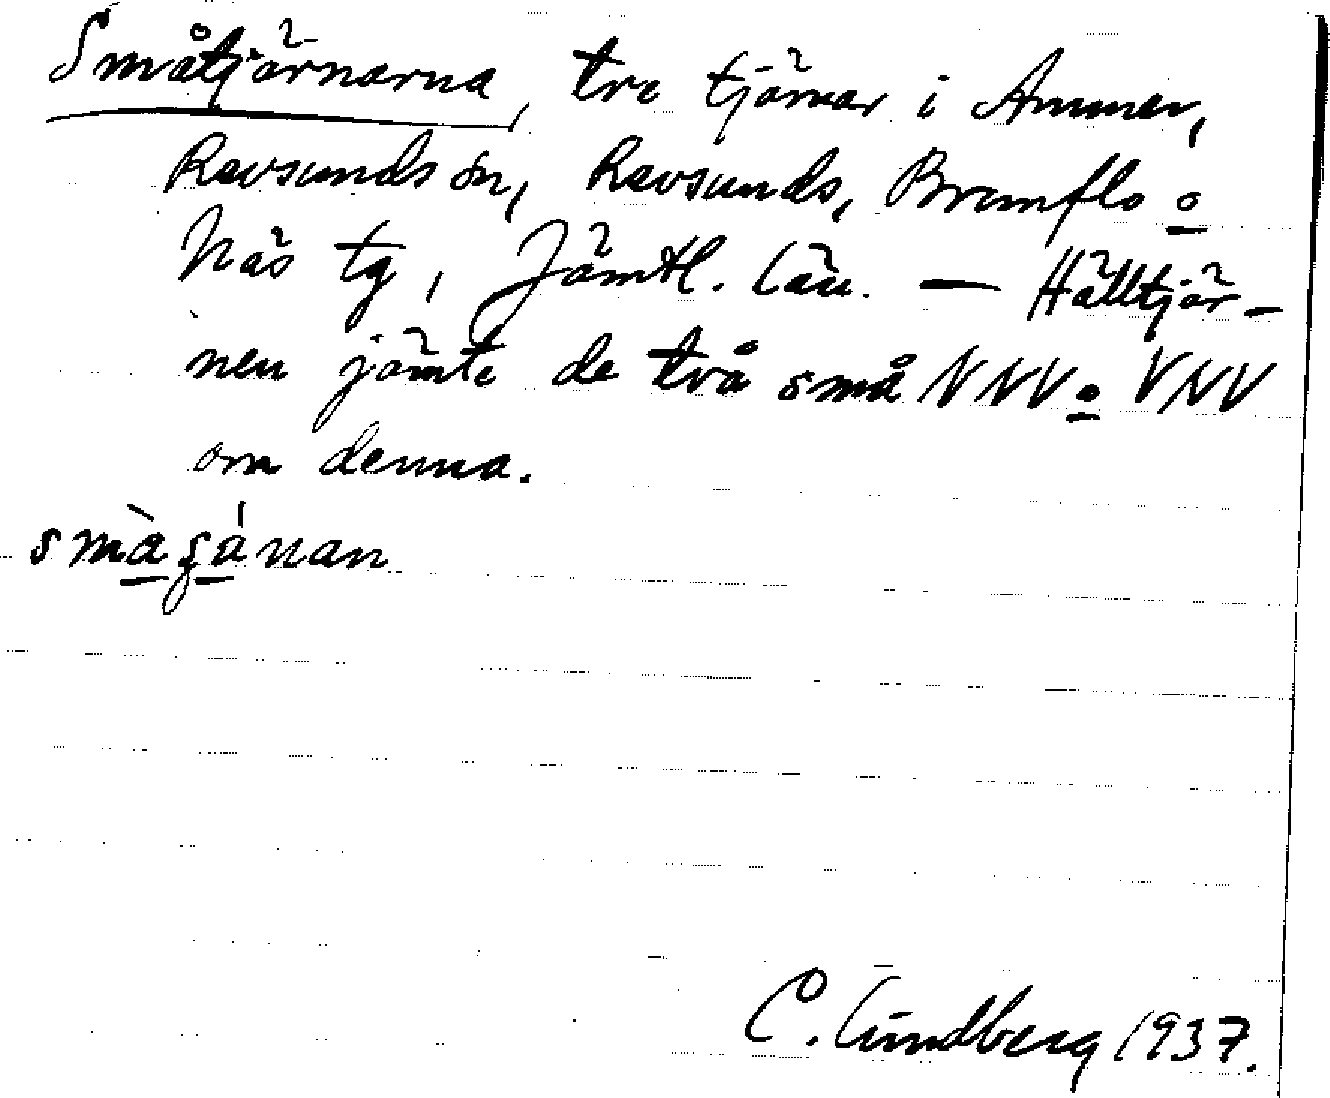 Småtjärnarna, tre tjärnar i Ammer,
Revsunds sn, Revsunds, Brunflo o
Näs tg, Jämtl. län. — Hälltjär-
nen jämte de två små NNV o VNV
om denna.
smàʂánan
C. Lindberg 1937.